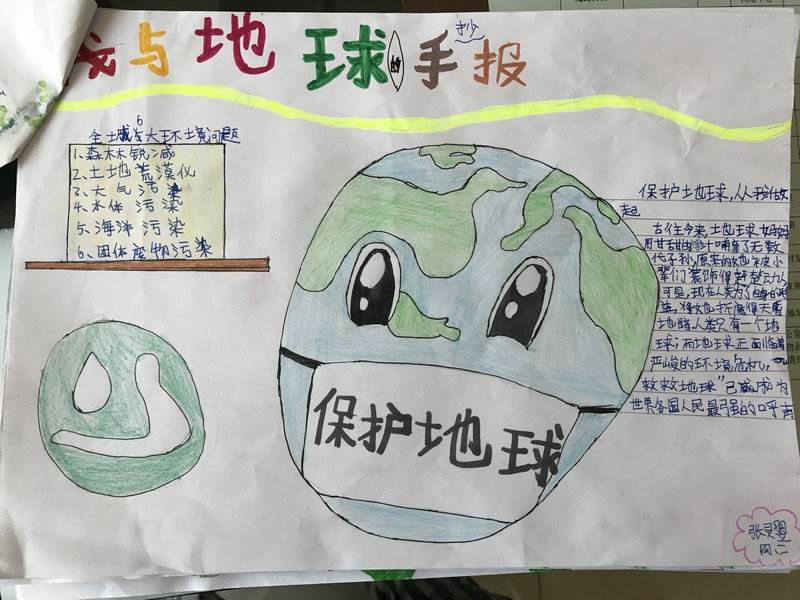 我与地球的手抄报
全球6大环境问题
1、森林锐减
2、土地荒漠化
3、大气污染
4、水体污染
5、海洋污染
6、固体废物污染
保护地球
保护地球,从我做
起
古往今来,地球妈妈
用甘甜的 哺育了无数
代子孙,原来的她被小
辈们装饰得 楚动人
可是,现在人类为了自身的利
益,将她折磨得
地 人类只有一个地
球;而地球正面临着
严峻的环境危机,
救救地球"已成为
世界各国人民最强的呼声